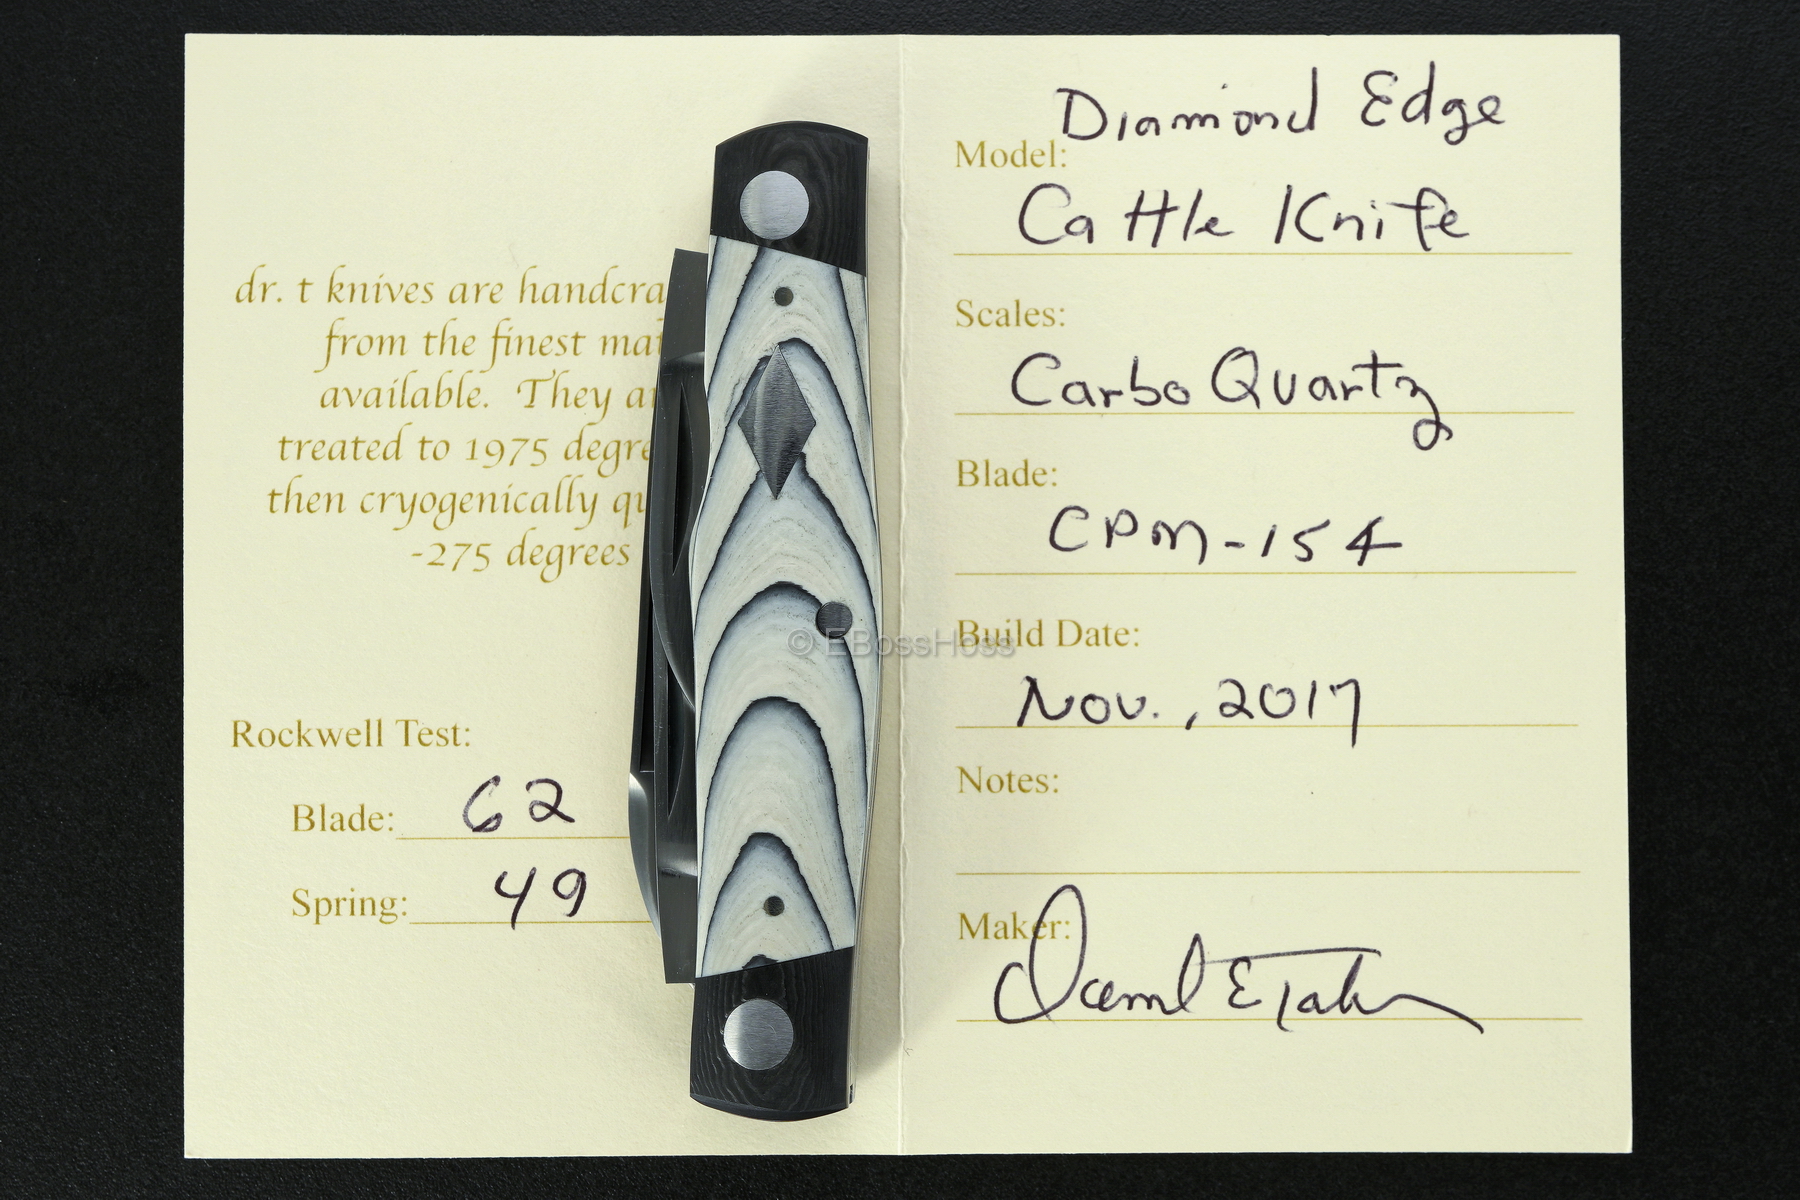 dr. t knives are handcra
from the finest mat
available. They a
treated to 1975 degre
then cryogenically qu
-275 degrees
Rockwell Test:
Blade: 62
Spring: 49
Diamond Edge
Model:
Cattle Knife
Scales:
CarboQuartz
Blade:
CPM-154
Build Date:
Nov., 2017
Notes:
Maker:
© EBossHoss